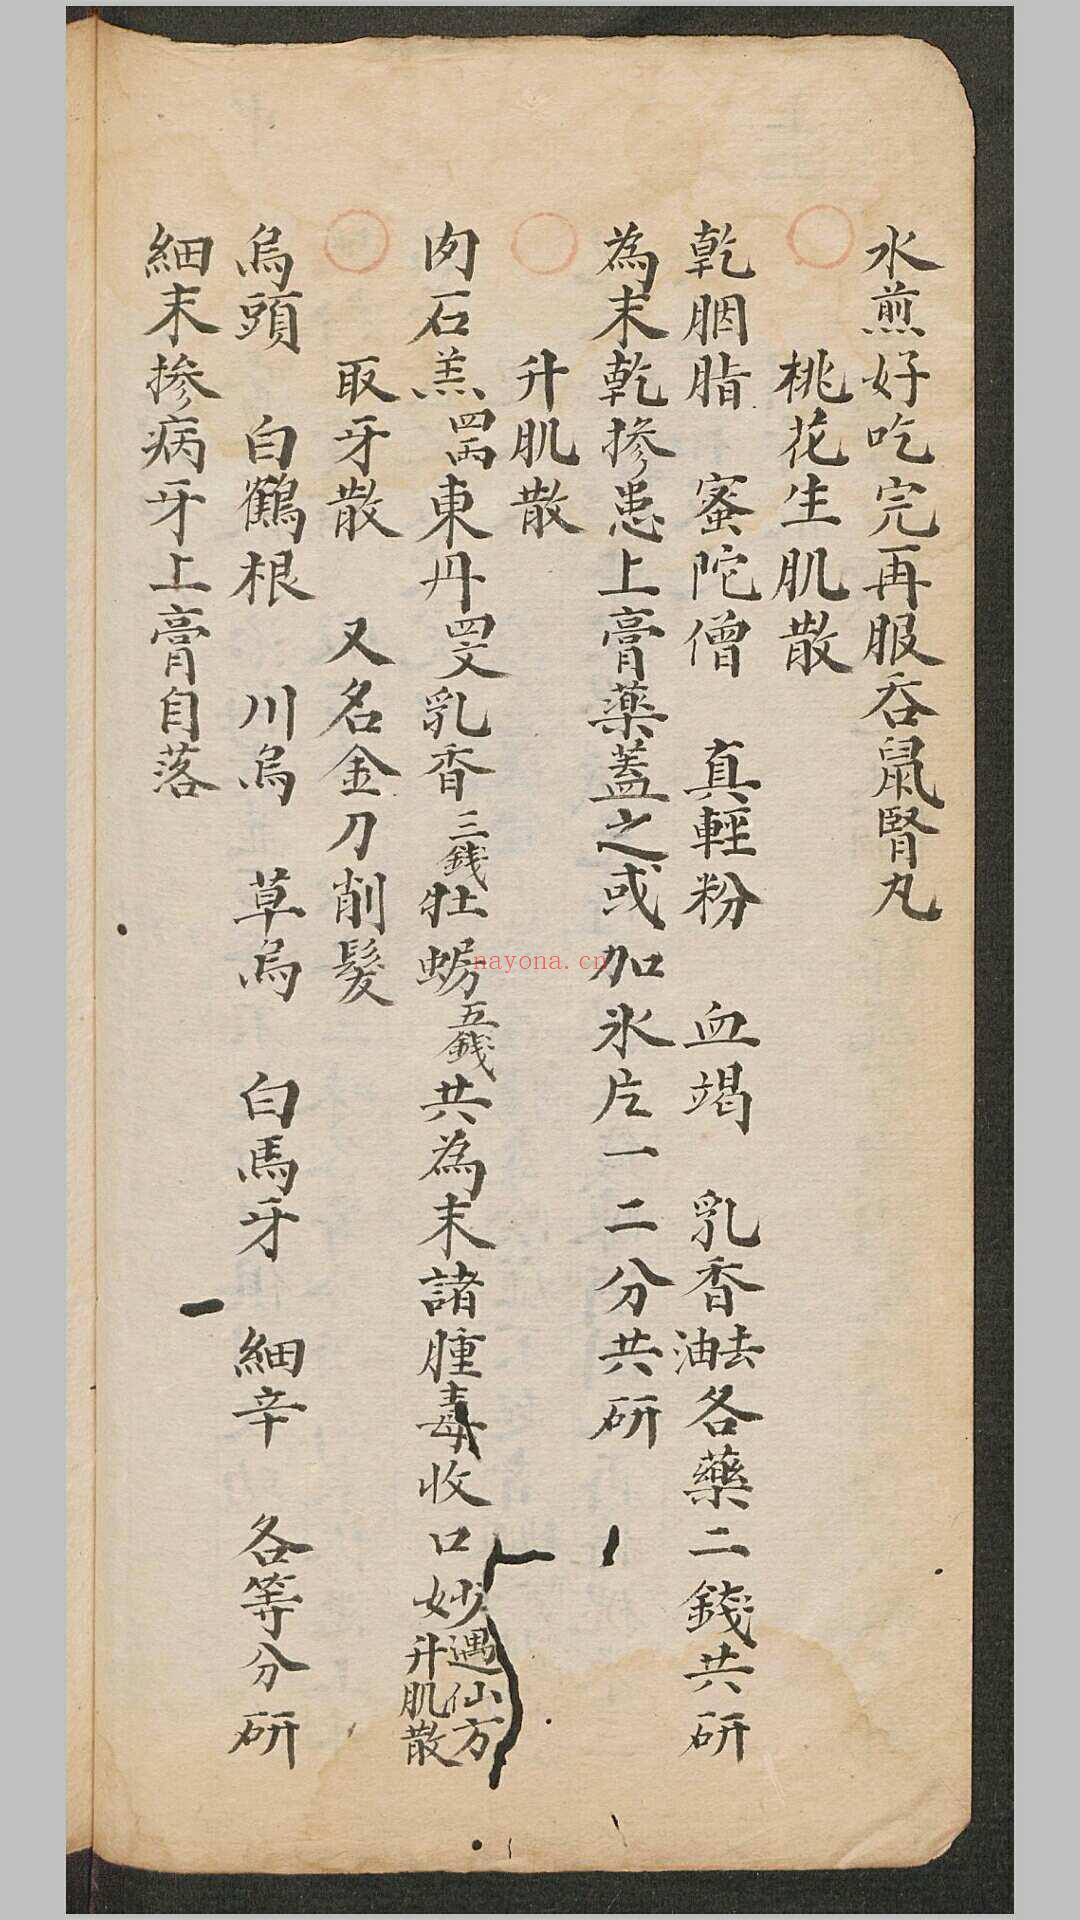 水煎好吃完再服吞鼠腎丸
桃花生肌散
乾胭脂 蜜陀僧 真輕粉 血竭 乳香去油各藥二錢共研
為末乾摻患上膏藥蓋之或加氷片一二分共研
升肌散
肉石羔四兩東丹四文乳香三錢牡蛎五錢共為末諸腫毒收口妙遇仙方升肌散
取牙散 又名金刀削髮
烏頭 白鶴根 川烏 草烏 白馬牙 細辛 各等分研
細末摻病牙上膏自落
nayona.cn